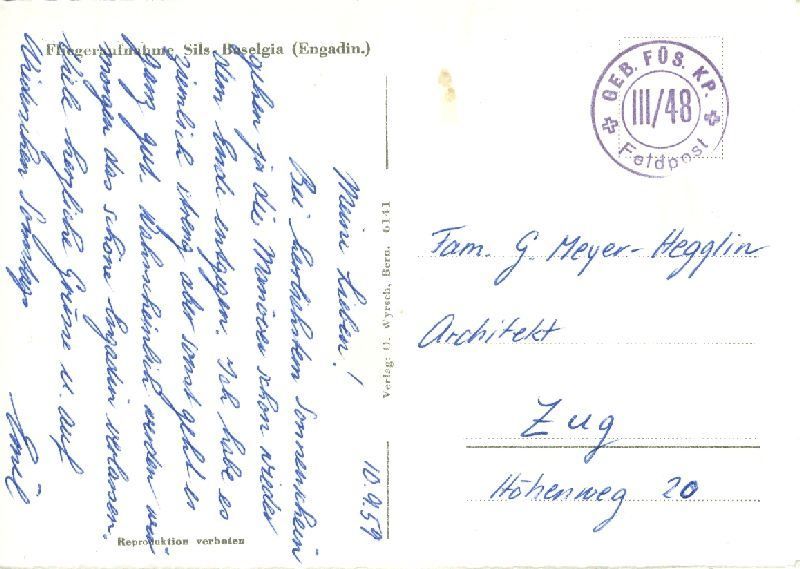 Fliegeraufnahme Sils-Baselgia (Engadin.)
10.9.59
Meine Lieben!
Bei herrlichstem Sonnenschein
gehen ja die Manöver schon wieder
dem Ende entgegen. Ich habe es
ziemlich streng aber sonst geht es
ganz gut. Wahrscheinlich werden wir
morgen das schöne Engadin verlassen.
Viele herzliche Grüsse u. auf
Wiedersehen
Emil
Verlag: O. Wyrsch, Bern. 6141
Reproduktion verboten
GEB. FÜS. KP.
III/48
Feldpost
Fam. G. Meyer-Hegglin
Architekt
Zug
Höhenweg 20